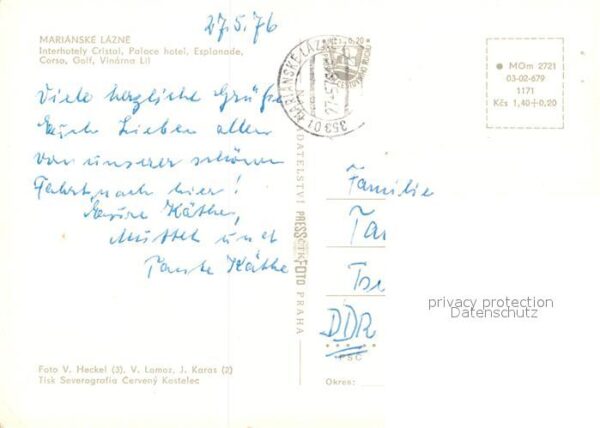 27.5.76
MARIÁNSKÉ LÁZNĚ
Interhotely Cristal, Palace hotel, Esplanade,
Corso, Golf, Vinárna Lil
Viele herzliche Grüße
Euch Lieben allen
von unserer schönen
Fahrt nach hier!
Eure Käthe,
Mutter und
Tante Käthe
353 01 MARIÁNSKÉ LÁZNĚ
MOm 2721
03-02-679
1171
Kčs 1,40+0,20
PRESSFOTO PRAHA
Familie
DDR
PSČ
Okres:
privacy protection
Datenschutz
Foto V. Heckel (3), V. Lomoz, J. Karas (2)
Tisk Severografia Červený Kostelec